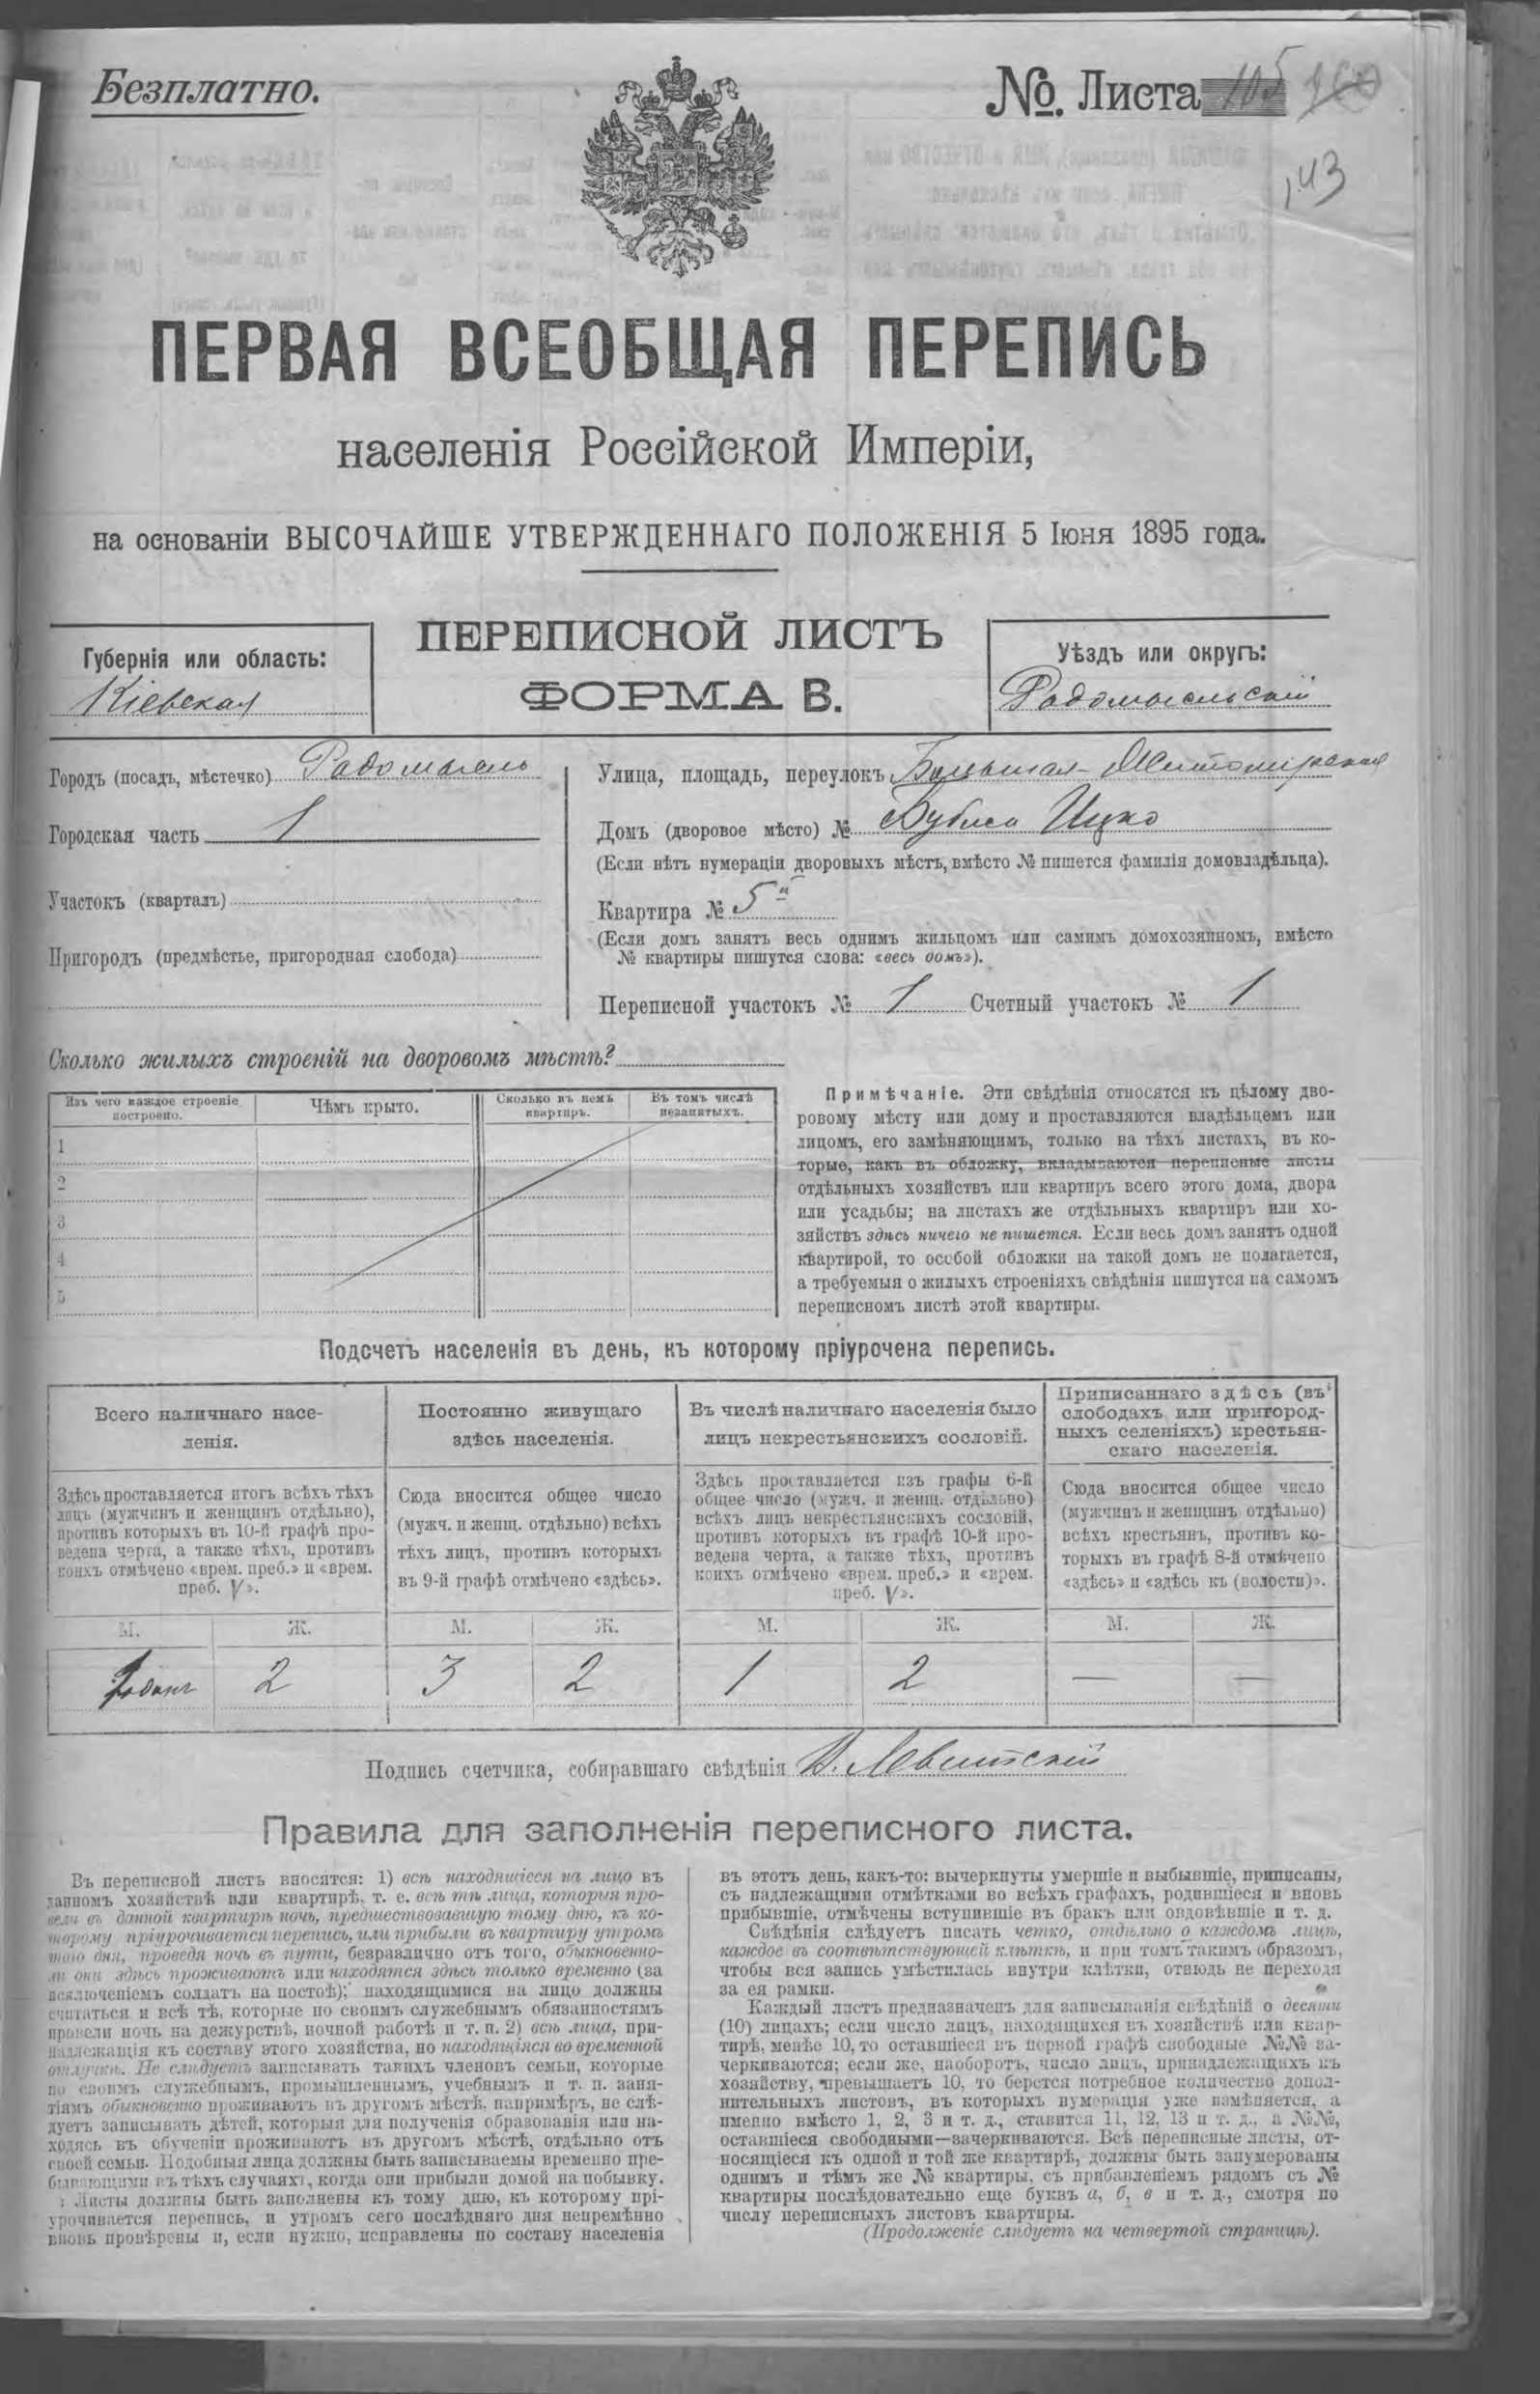 Безплатно.
№. Листа 105
143
ПЕРВАЯ ВСЕОБЩАЯ ПЕРЕПИСЬ
населенія Россійской Имперіи,
на основаніи ВЫСОЧАЙШЕ УТВЕРЖДЕННАГО ПОЛОЖЕНІЯ 5 Іюня 1895 года.
ПЕРЕПИСНОЙ ЛИСТЪ
ФОРМА В.
Губернія или область:
Кіевская
Уѣздъ или округъ:
Радомысльскій
Городъ (посадъ, мѣстечко) Радомысль
Городская часть 1
Участокъ (кварталъ)
Пригородъ (предмѣстье, пригородная слобода)
Улица, площадь, переулокъ Большая-Житомирская
Домъ (дворовое мѣсто) № Ицко
(Если нѣтъ нумераціи дворовыхъ мѣстъ, вмѣсто № пишется фамилія домовладѣльца).
Квартира № 5
(Если домъ занятъ весь однимъ жильцомъ или самимъ домохозяиномъ, вмѣсто
№ квартиры пишутся слова: «весь домъ»).
Переписной участокъ № 1 Счетный участокъ № 1
Сколько жилыхъ строеній на дворовомъ мѣстѣ?
Изъ чего каждое строеніе
построено.
Чѣмъ крыто.
Сколько въ немъ
квартиръ.
Въ томъ числѣ
незанятыхъ.
1
2
3
4
5
Примѣчаніе. Эти свѣдѣнія относятся къ цѣлому дво-
ровому мѣсту или дому и проставляются владѣльцемъ или
лицомъ, его замѣняющимъ, только на тѣхъ листахъ, въ ко-
торые, какъ въ обложку, вкладываются переписные листы
отдѣльныхъ хозяйствъ или квартиръ всего этого дома, двора
или усадьбы; на листахъ же отдѣльныхъ квартиръ или хо-
зяйствъ здѣсь ничего не пишется. Если весь домъ занятъ одной
квартирой, то особой обложки на такой домъ не полагается,
а требуемыя о жилыхъ строеніяхъ свѣдѣнія пишутся на самомъ
переписномъ листѣ этой квартиры.
Подсчетъ населенія въ день, къ которому пріурочена перепись.
Всего наличнаго насе-
ленія.
Постоянно живущаго
здѣсь населенія.
Въ числѣ наличнаго населенія было
лицъ некрестьянскихъ сословій.
Приписаннаго здѣсь (въ
слободахъ или пригород-
ныхъ селеніяхъ) крестьян-
скаго населенія.
Здѣсь проставляется итогъ всѣхъ тѣхъ
лицъ (мужчинъ и женщинъ отдѣльно),
противъ которыхъ въ 10-й графѣ про-
ведена черта, а также тѣхъ, противъ
коихъ отмѣчено «врем. преб.» и «врем.
преб. V».
Сюда вносится общее число
(мужч. и женщ. отдѣльно) всѣхъ
тѣхъ лицъ, противъ которыхъ
въ 9-й графѣ отмѣчено «здѣсь».
Здѣсь проставляется изъ графы 6-й
общее число (мужч. и женщ. отдѣльно)
всѣхъ лицъ некрестьянскихъ сословій,
противъ которыхъ въ графѣ 10-й про-
ведена черта, а также тѣхъ, противъ
коихъ отмѣчено «врем. преб.» и «врем.
преб. V».
Сюда вносится общее число
(мужчинъ и женщинъ отдѣльно)
всѣхъ крестьянъ, противъ ко-
торыхъ въ графѣ 8-й отмѣчено
«здѣсь» и «здѣсь къ (волости)».
М. Ж. М. Ж. М. Ж. М. Ж.
1 одинъ 2 3 2 1 2 — —
Подпись счетчика, собиравшаго свѣдѣнія Левитскій
Правила для заполненія переписного листа.
Въ переписной листъ вносятся: 1) всѣ находящіеся на лицо въ
данномъ хозяйствѣ или квартирѣ, т. е. всѣ тѣ лица, которыя про-
вели въ данной квартирѣ ночь, предшествовавшую тому дню, къ ко-
торому пріурочивается перепись, или прибыли въ квартиру утромъ
того дня, проведя ночь въ пути, безразлично отъ того, обыкновенно-
ли они здѣсь проживаютъ или находятся здѣсь только временно (за
исключеніемъ солдатъ на постоѣ); находящимися на лицо должны
считаться и всѣ тѣ, которые по своимъ служебнымъ обязанностямъ
провели ночь на дежурствѣ, ночной работѣ и т. п. 2) всѣ лица, при-
надлежащія къ составу этого хозяйства, но находящіяся во временной
отлучкѣ. Не слѣдуетъ записывать такихъ членовъ семьи, которые
по своимъ служебнымъ, промышленнымъ, учебнымъ и т. п. заня-
тіямъ обыкновенно проживаютъ въ другомъ мѣстѣ, напримѣръ, не слѣ-
дуетъ записывать дѣтей, которыя для полученія образованія или на-
ходясь въ обученіи проживаютъ въ другомъ мѣстѣ, отдѣльно отъ
своей семьи. Подобныя лица должны быть записываемы временно пре-
бывающими въ тѣхъ случаяхъ, когда они прибыли домой на побывку.
Листы должны быть заполнены къ тому дню, къ которому прі-
урочивается перепись, и утромъ сего послѣдняго дня непремѣнно
вновь провѣрены и, если нужно, исправлены по составу населенія
въ этотъ день, какъ-то: вычеркнуты умершіе и выбывшіе, приписаны,
съ надлежащими отмѣтками во всѣхъ графахъ, родившіеся и вновь
прибывшіе, отмѣчены вступившіе въ бракъ или овдовѣвшіе и т. д.
Свѣдѣнія слѣдуетъ писать четко, отдѣльно о каждомъ лицѣ,
каждое въ соотвѣтствующей клѣткѣ, и при томъ такимъ образомъ,
чтобы вся запись умѣстилась внутри клѣтки, отнюдь не переходя
за ея рамки.
Каждый листъ предназначенъ для записыванія свѣдѣній о десяти
(10) лицахъ; если число лицъ, находящихся въ хозяйствѣ или квар-
тирѣ, менѣе 10, то оставшіеся въ первой графѣ свободные №№ за-
черкиваются; если же, наоборотъ, число лицъ, принадлежащихъ къ
хозяйству, превышаетъ 10, то берется потребное количество допол-
нительныхъ листовъ, въ которыхъ нумерація уже измѣняется, а
именно вмѣсто 1, 2, 3 и т. д., ставится 11, 12, 13 и т. д., а №№,
оставшіеся свободными—зачеркиваются. Всѣ переписные листы, от-
носящіеся къ одной и той же квартирѣ, должны быть занумерованы
однимъ и тѣмъ же № квартиры, съ прибавленіемъ рядомъ съ №
квартиры послѣдовательно еще буквъ а, б, в и т. д., смотря по
числу переписныхъ листовъ квартиры.
(Продолженіе слѣдуетъ на четвертой страницѣ).